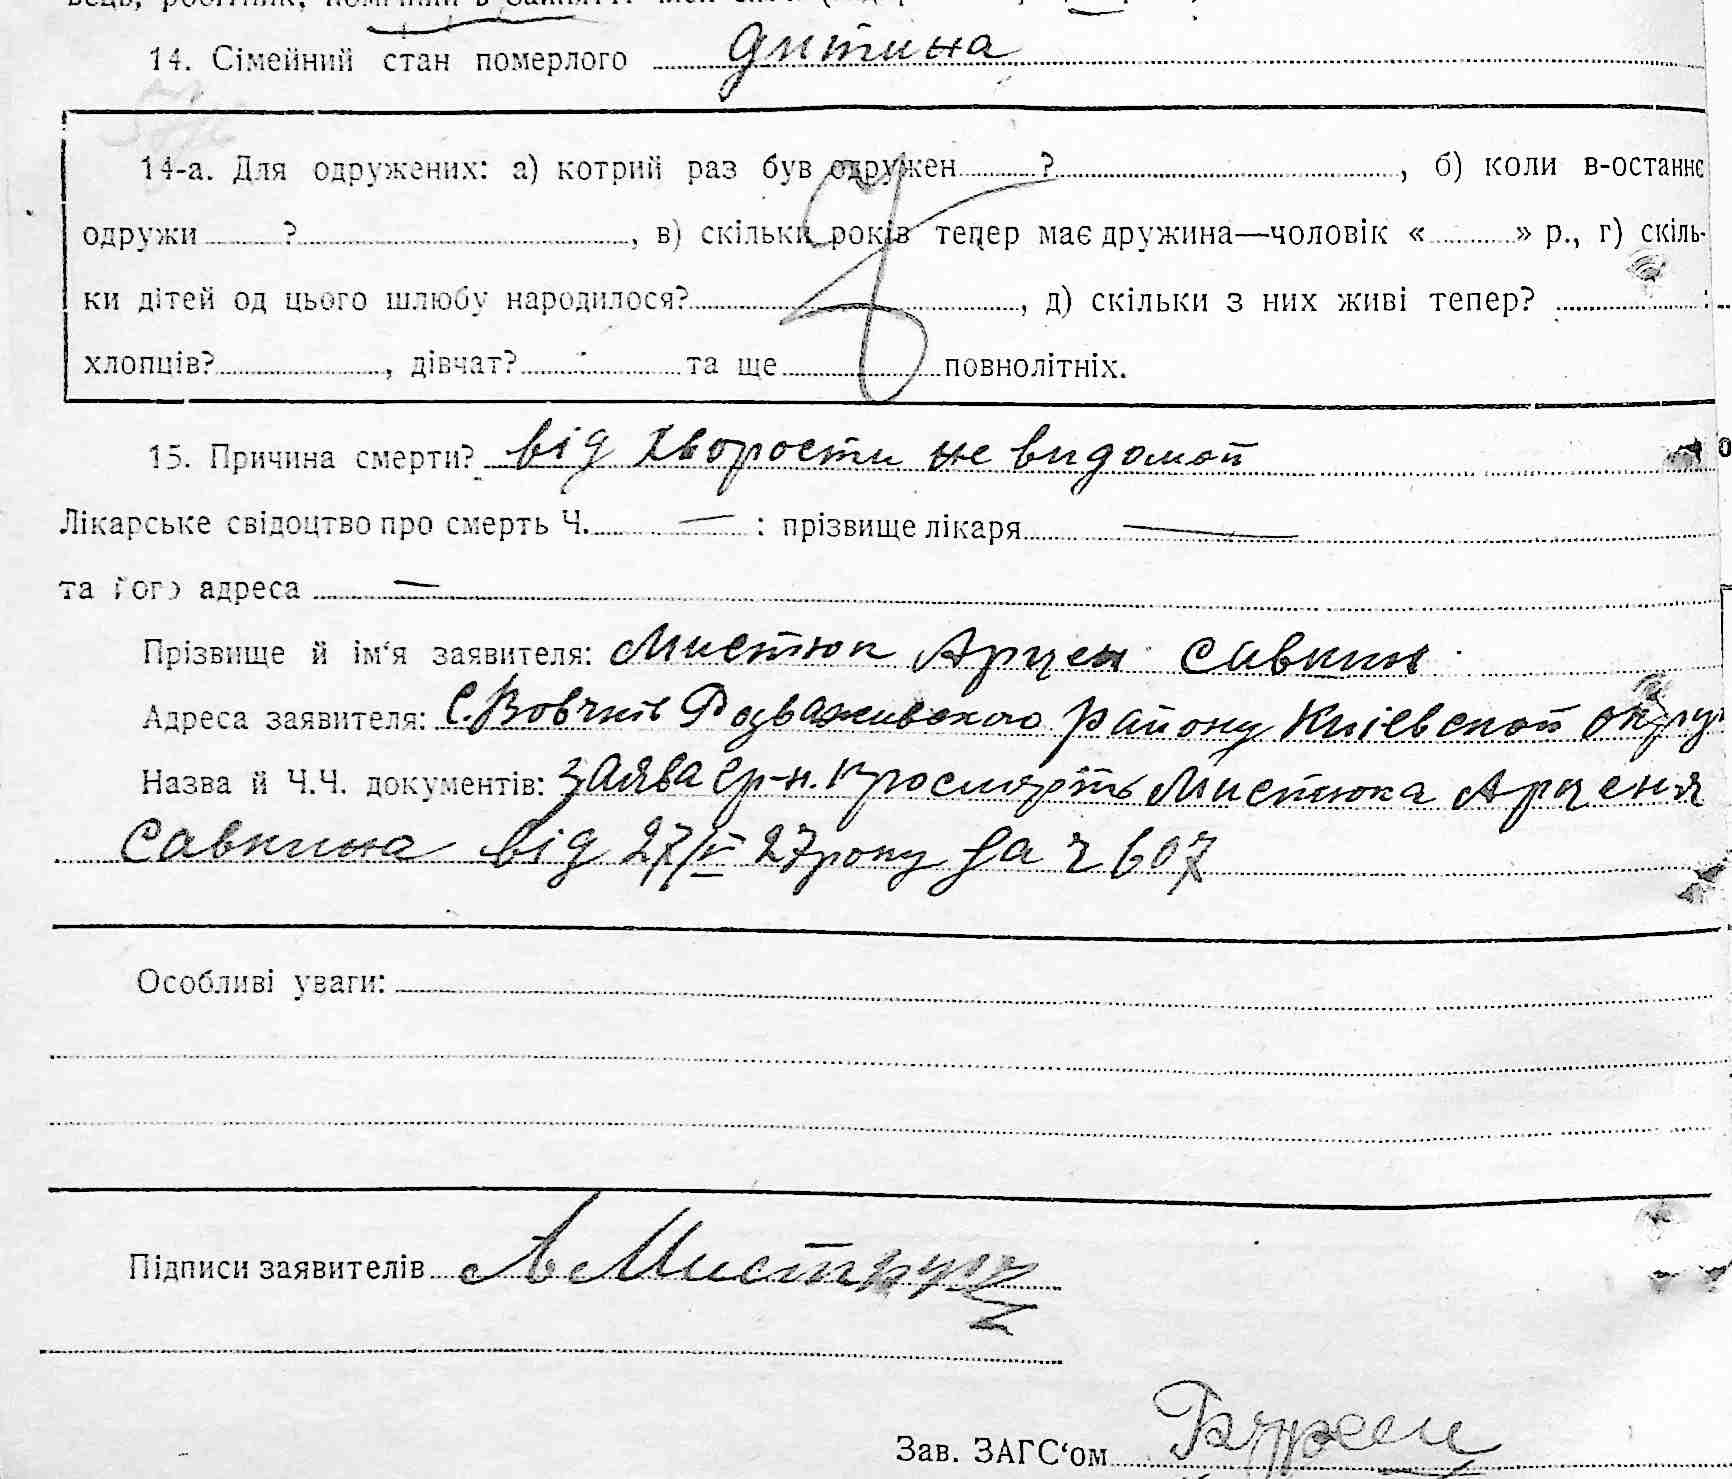 14. Сімейний стан померлого дитина
14-а. Для одружених: а) котрий раз був одружен ? , б) коли в-останнє
одружи ? , в) скільки років тепер має дружина—чоловік « » р., г) скіль-
ки дітей од цього шлюбу народилося? , д) скільки з них живі тепер? :
хлопців? , дівчат? та ще повнолітніх.
15. Причина смерти? від хворости не видомой
Лікарське свідоцтво про смерть Ч. — : прізвище лікаря —
та його адреса —
Прізвище й ім'я заявителя: Мистюк Арцен Савкин
Адреса заявителя: С. Вовчків Розваживського району Киівской округ
Назва й Ч.Ч. документів: Заява гр-н. про смирть Мистюка Арценя
Савкина від 27/IV 27 року за ч 607
Особливі уваги:
Підписи заявителів А Мистюк
Зав. ЗАГС'ом